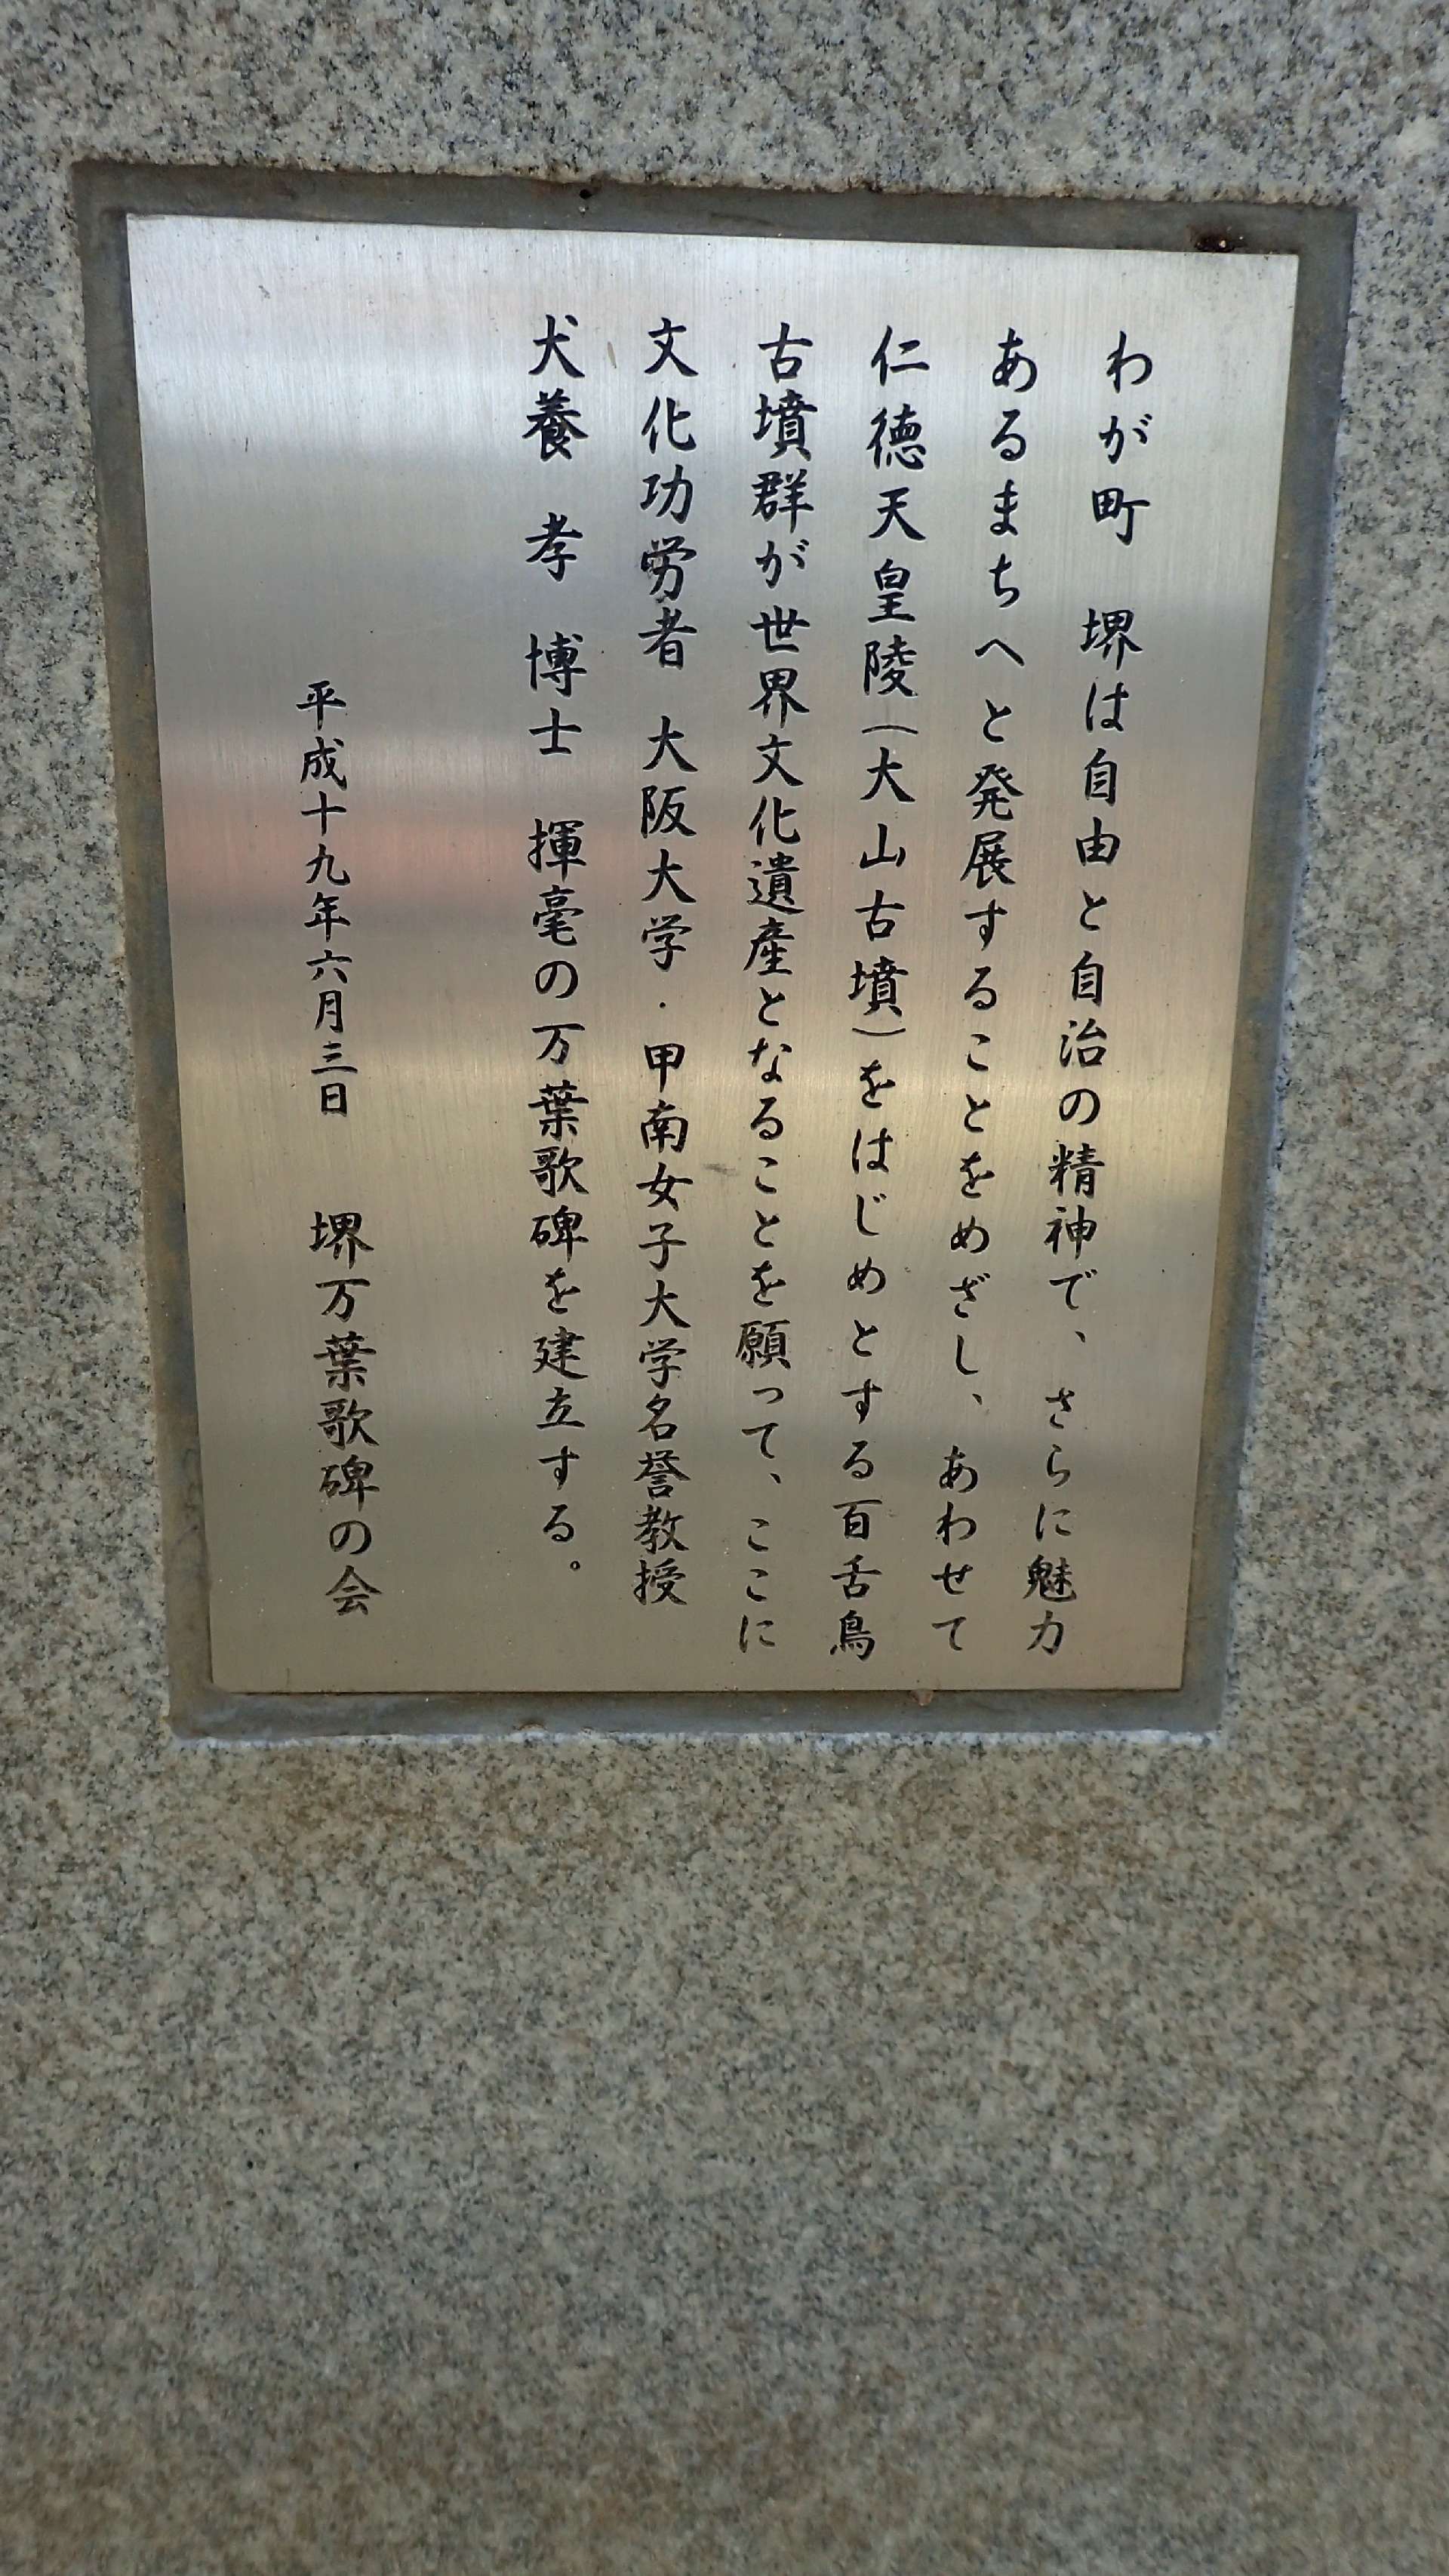 わが町　堺は自由と自治の精神で、さらに魅力
あるまちへと発展することをめざし、あわせて
仁徳天皇陵(大山古墳)をはじめとする百舌鳥
古墳群が世界文化遺産となることを願って、ここに
文化功労者　大阪大学・甲南女子大学名誉教授
犬養　孝　博士　揮毫の万葉歌碑を建立する。
平成十九年六月三日　堺万葉歌碑の会